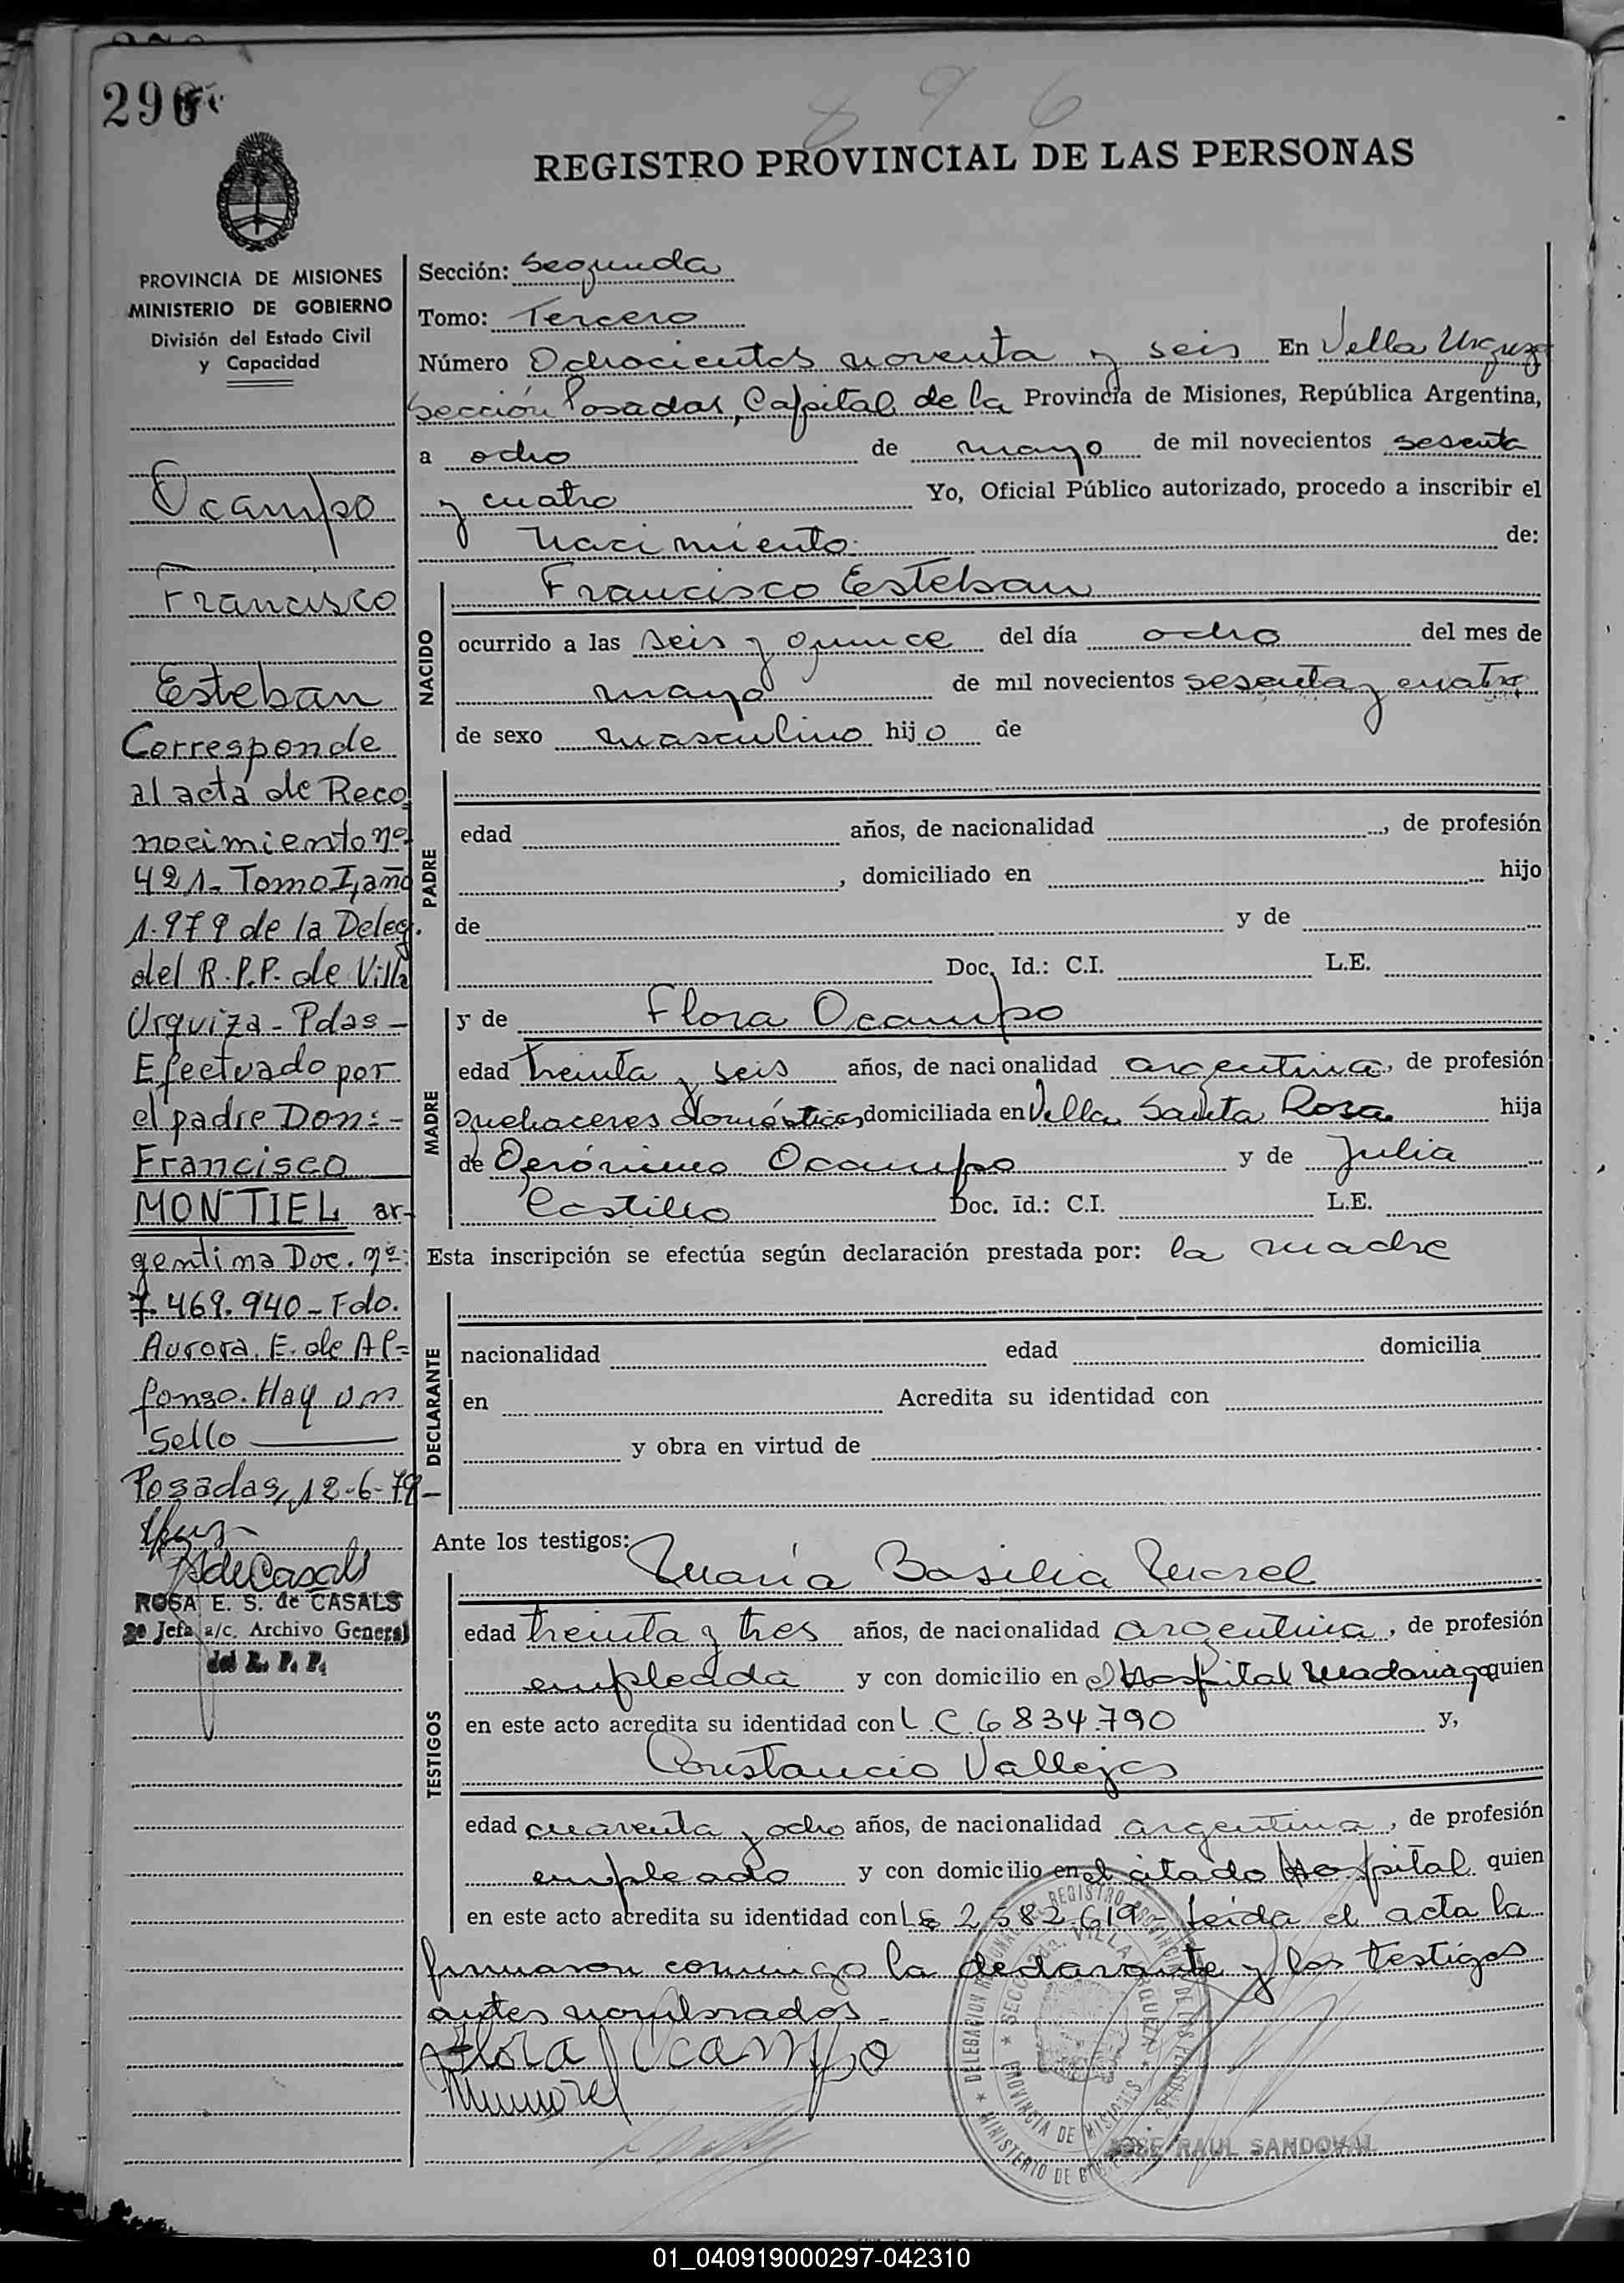 896
REGISTRO PROVINCIAL DE LAS PERSONAS
PROVINCIA DE MISIONES
MINISTERIO DE GOBIERNO
División del Estado Civil
y Capacidad
Ocampo
Francisco
Esteban
Corresponde
al acta de Reco
nocimiento nº
421- Tomo I, año
1.979 de la Deleg.
del R.P.P. de Villa
Urquiza - Pdas -
Efectuado por
el padre Don: -
Francisco
MONTIEL ar-
gentino Doc. nº:
7.469.940 - Fdo.
Aurora. E. de Al-
fonso. Hay un
Sello
Posadas, 12-6-79-
ROSA E. S. de CASALS
2º Jefa a/c. Archivo General
del R. P. P.
Sección: Segunda
Tomo: Tercero
Número Ochocientos noventa y seis En Villa Urquiza
Sección Posadas, Capital de la Provincia de Misiones, República Argentina,
a ocho de mayo de mil novecientos sesenta
y cuatro Yo, Oficial Público autorizado, procedo a inscribir el
Nacimiento de:
NACIDO
Francisco Esteban
ocurrido a las seis y quince del día ocho del mes de
mayo de mil novecientos sesenta y cuatro
de sexo masculino hijo de
PADRE
edad años, de nacionalidad , de profesión
, domiciliado en hijo
de y de
Doc. Id.: C.I. L.E.
MADRE
y de Flora Ocampo
edad treinta y seis años, de nacionalidad argentina, de profesión
quehaceres domésticos, domiciliada en Villa Santa Rosa hija
de Gerónimo Ocampo y de Julia
Castillo Doc. Id.: C.I. L.E.
Esta inscripción se efectúa según declaración prestada por: la madre
DECLARANTE
nacionalidad edad domicilia
en Acredita su identidad con
y obra en virtud de
Ante los testigos:
TESTIGOS
María Basilia Morel
edad treinta y tres años, de nacionalidad argentina, de profesión
empleada y con domicilio en el Hospital Madariaga quien
en este acto acredita su identidad con L.C. 6834.790 y,
Constancio Vallejos
edad cuarenta y ocho años, de nacionalidad argentina, de profesión
empleado y con domicilio en el citado Hospital quien
en este acto acredita su identidad con LE 2.582.619- Leida el acta la
firmaron conmigo la declarante y los testigos
antes nombrados.-
Flora Ocampo
JOSE RAUL SANDOVAL
01_040919000297-042310